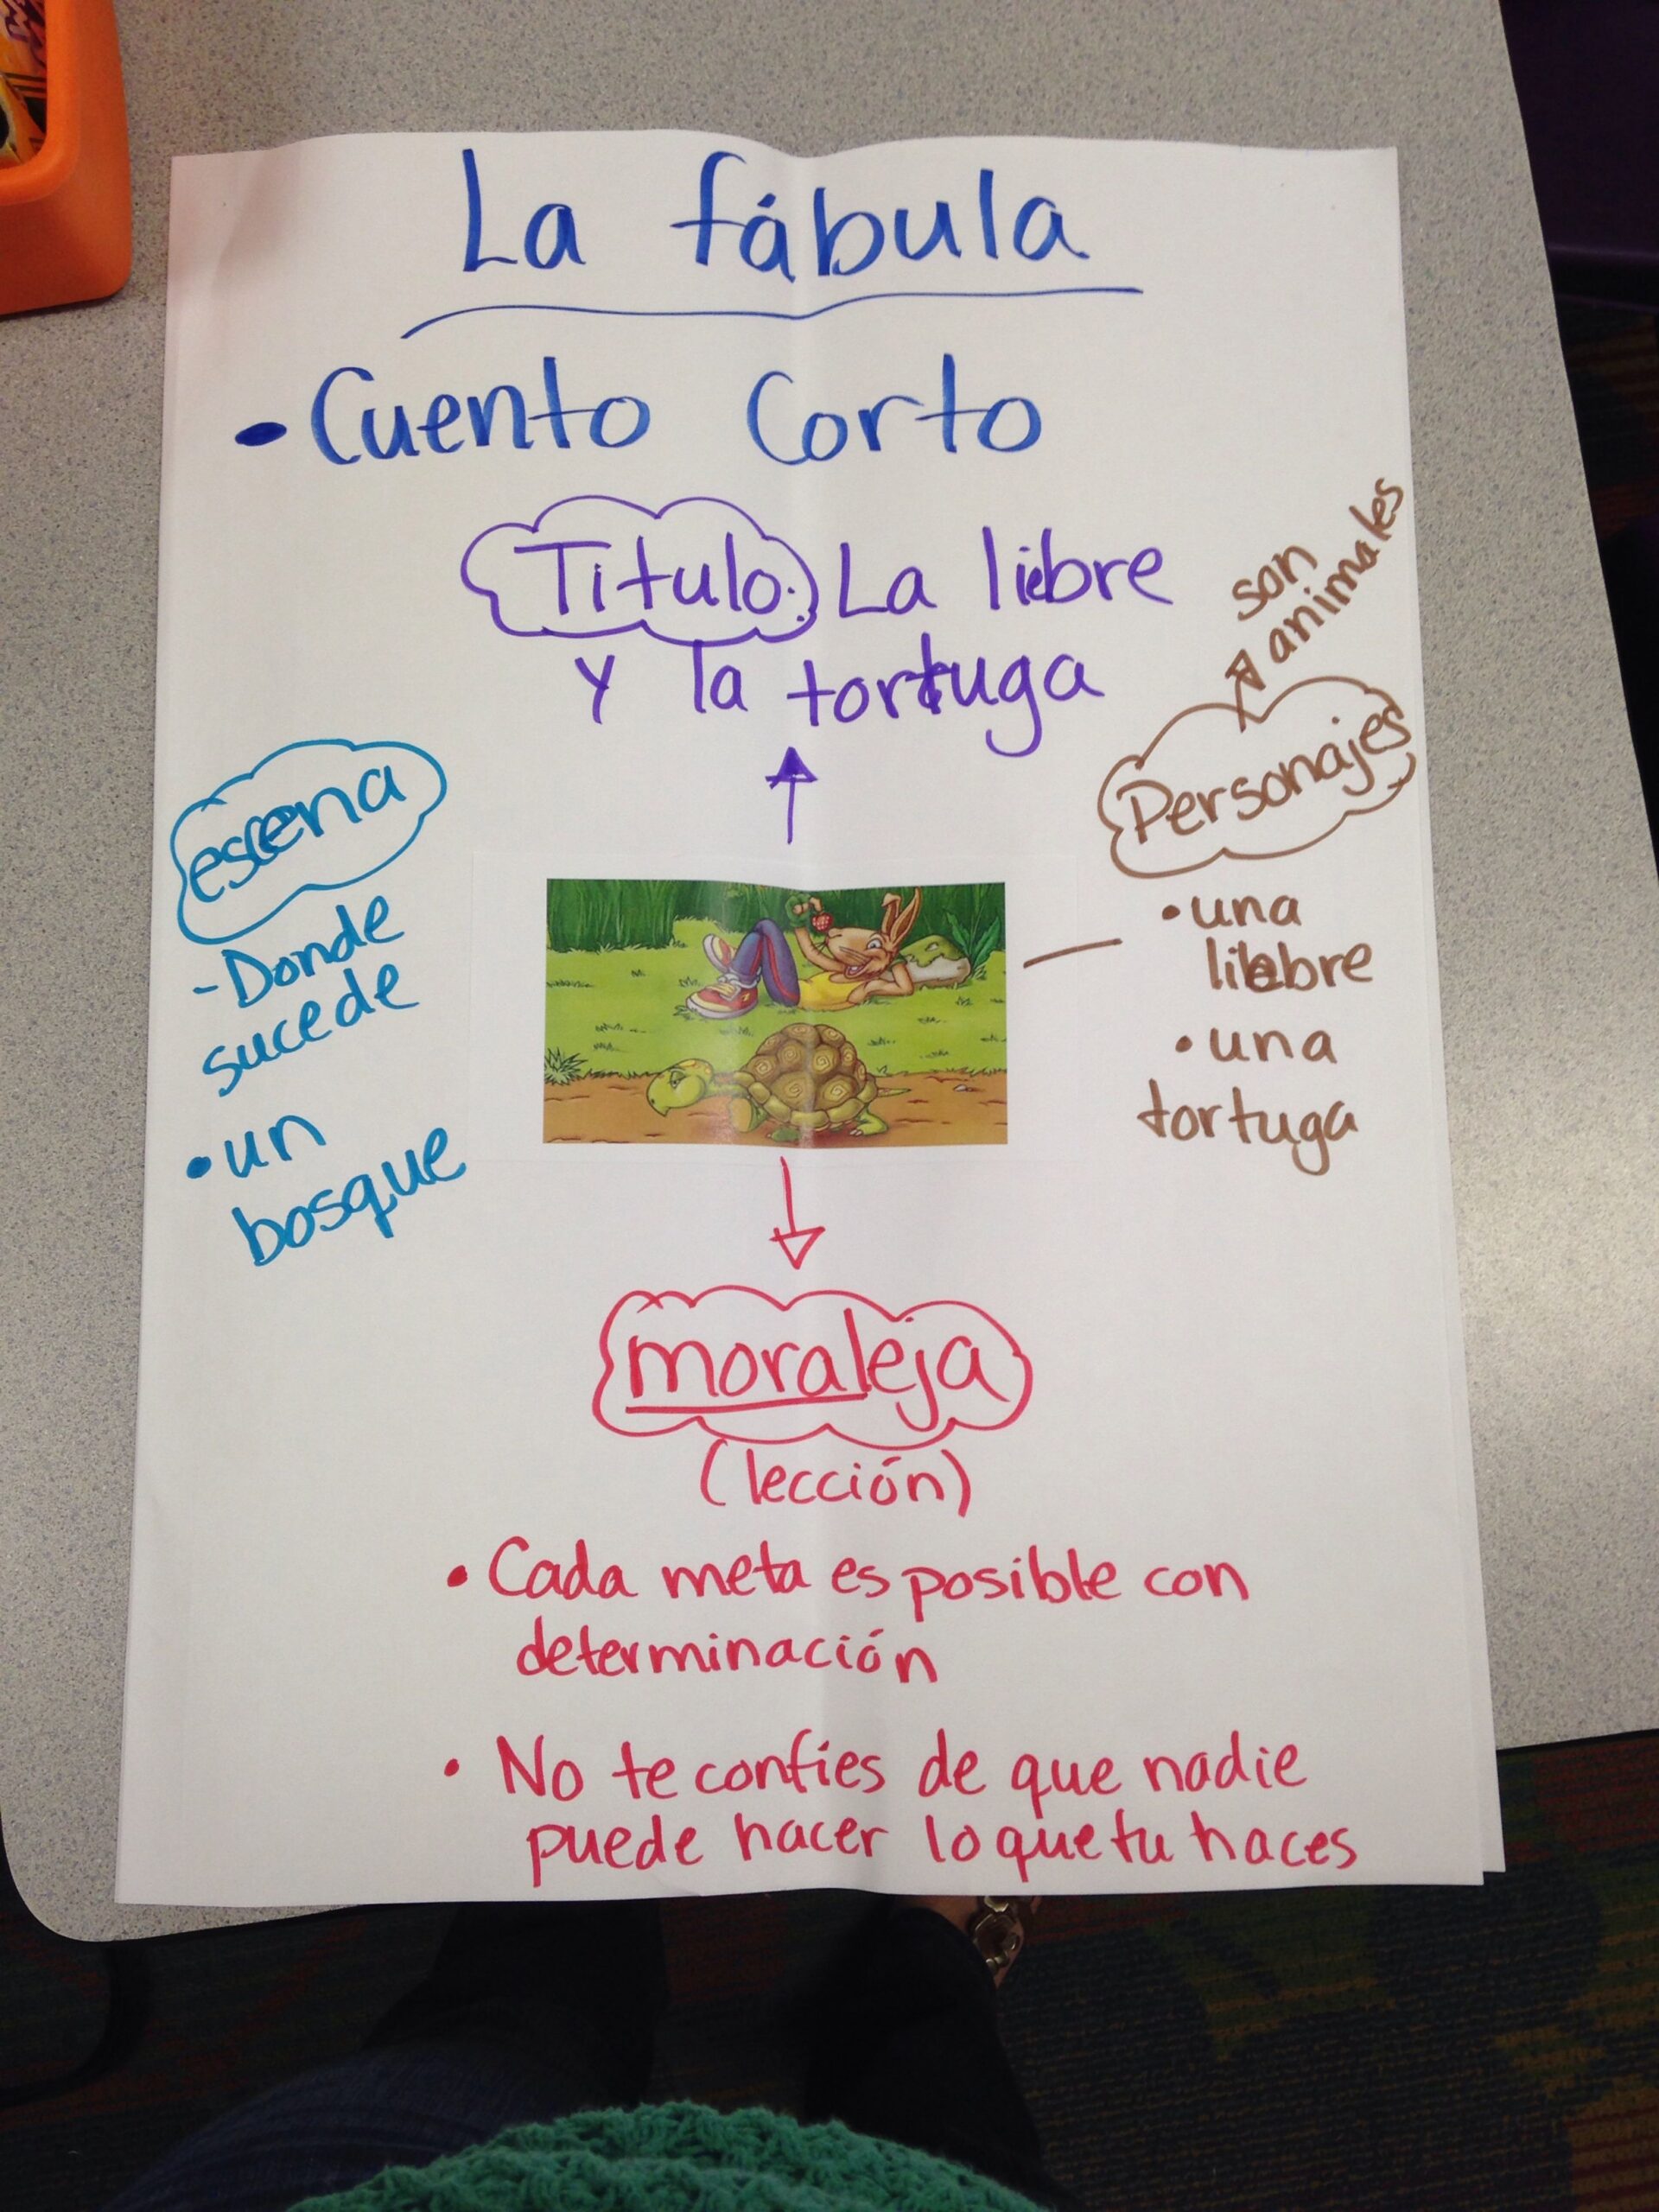 La fábula
• Cuento Corto
Titulo: La liebre
y la tortuga
son
animales
Personajes
• una
liebre
• una
tortuga
escena
- Donde
sucede
• un
bosque
moraleja
(lección)
• Cada meta es posible con
determinación
• No te confies de que nadie
puede hacer lo que tu haces